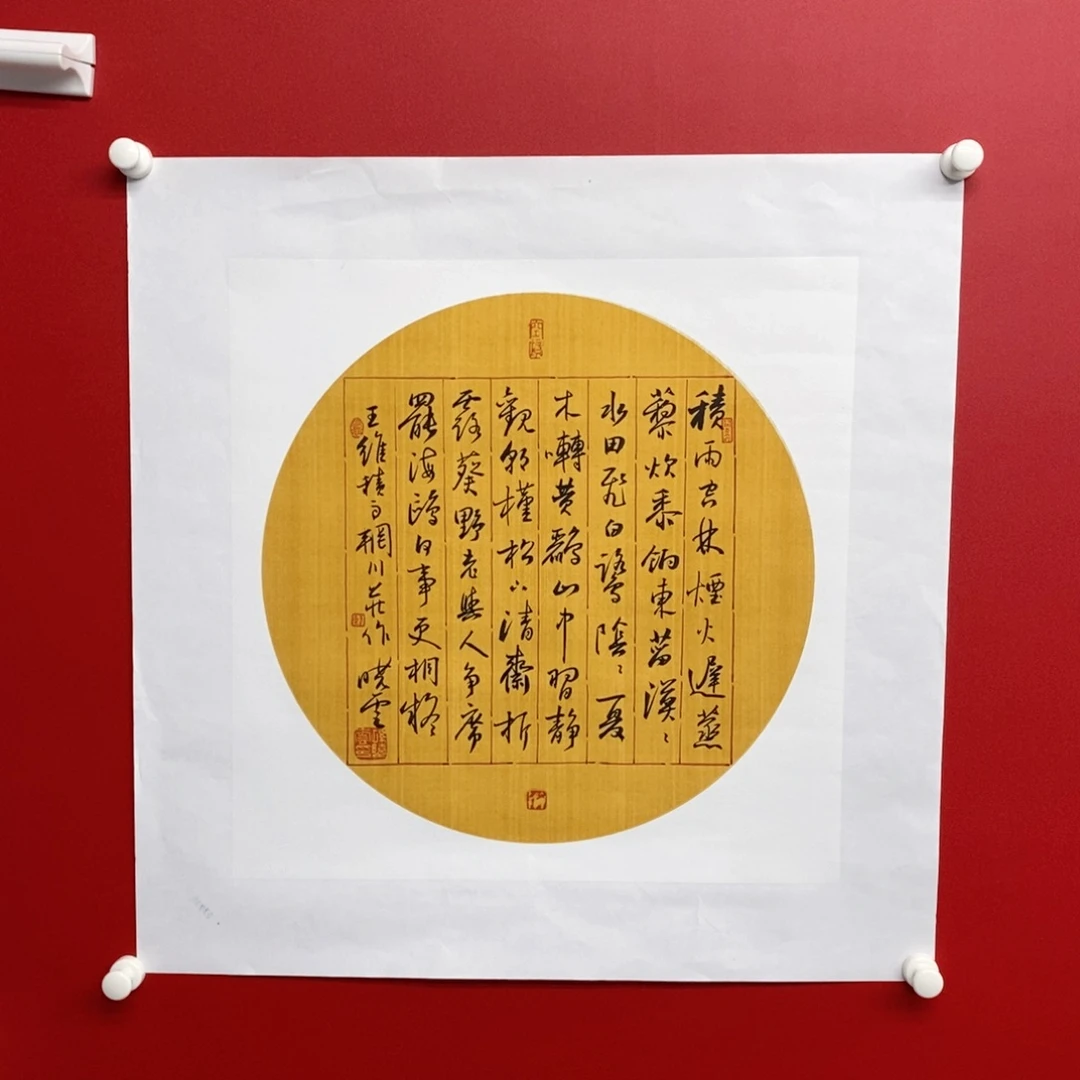 積雨空林煙火遲蒸
藜炊黍餉東菑漠〻
水田飛白鷺陰〻夏
木囀黃鸝山中習靜
觀朝槿松下清齋折
露葵野老與人爭席
罷海鷗何事更相疑
王維積雨輞川莊作 曉雲